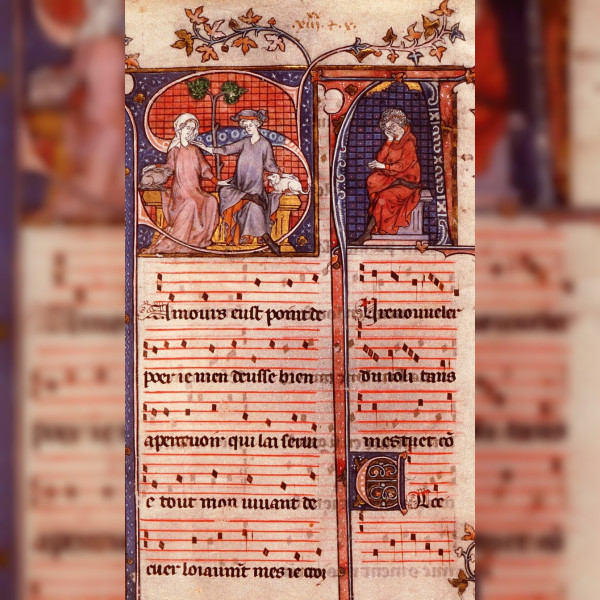 SAmours eust point de
poer ie men deusse bien
apercevoir qui lai servi
e tout mon vivant de
cuer loiaumt mes ie croi
AU renouveler
du ioli tans
mestuet cō
Ecce